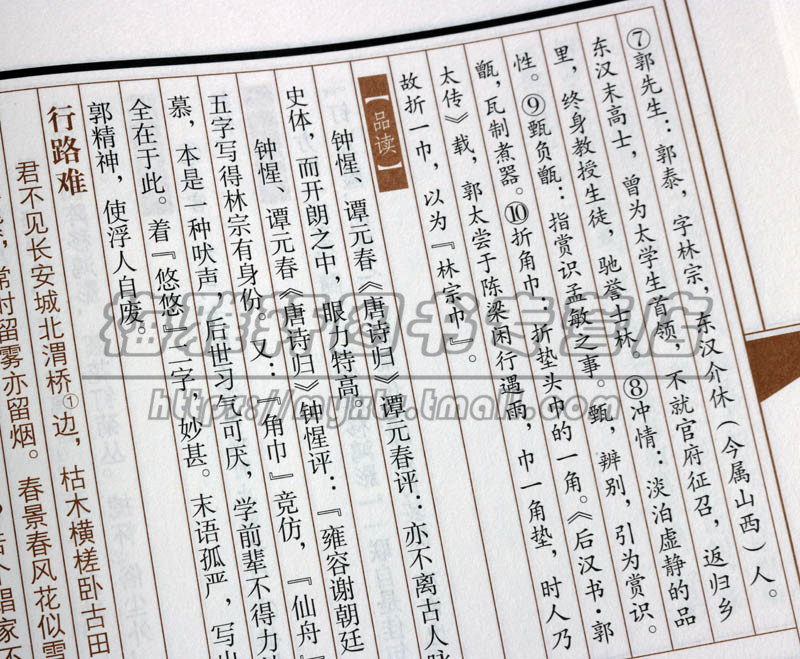 ⑦郭先生：郭泰，字林宗，东汉介休（今属山西）人。
东汉末高士，曾为太学生首领，不就官府征召，返归乡
里，终身教授生徒，驰誉士林。⑧冲情：淡泊虚静的品
性。⑨甄负甑：指赏识孟敏之事。甄，辨别，引为赏识。
甑，瓦制煮器。⑩折角巾：折垫头巾的一角。《后汉书·郭
太传》载，郭太尝于陈梁闲行遇雨，巾一角垫，时人乃
故折一巾，以为『林宗巾』。
【品读】
钟惺、谭元春《唐诗归》谭元春评：亦不离古人脉
史体，而开朗之中，眼力特高。
钟惺、谭元春《唐诗归》钟惺评：『雍容谢朝廷
五字写得林宗有身份。又：『角巾』竞仿，『仙舟』
慕，本是一种吠声，后世习气可厌，学前辈不得力
全在于此。着『悠悠』二字，妙甚。末语孤严，写出
郭精神，使浮人自废。
行路难
君不见长安城北渭桥①边，枯木横槎卧古田
常时留雾亦留烟。春景春风花似雪
倡家不
雅轩图书专营店